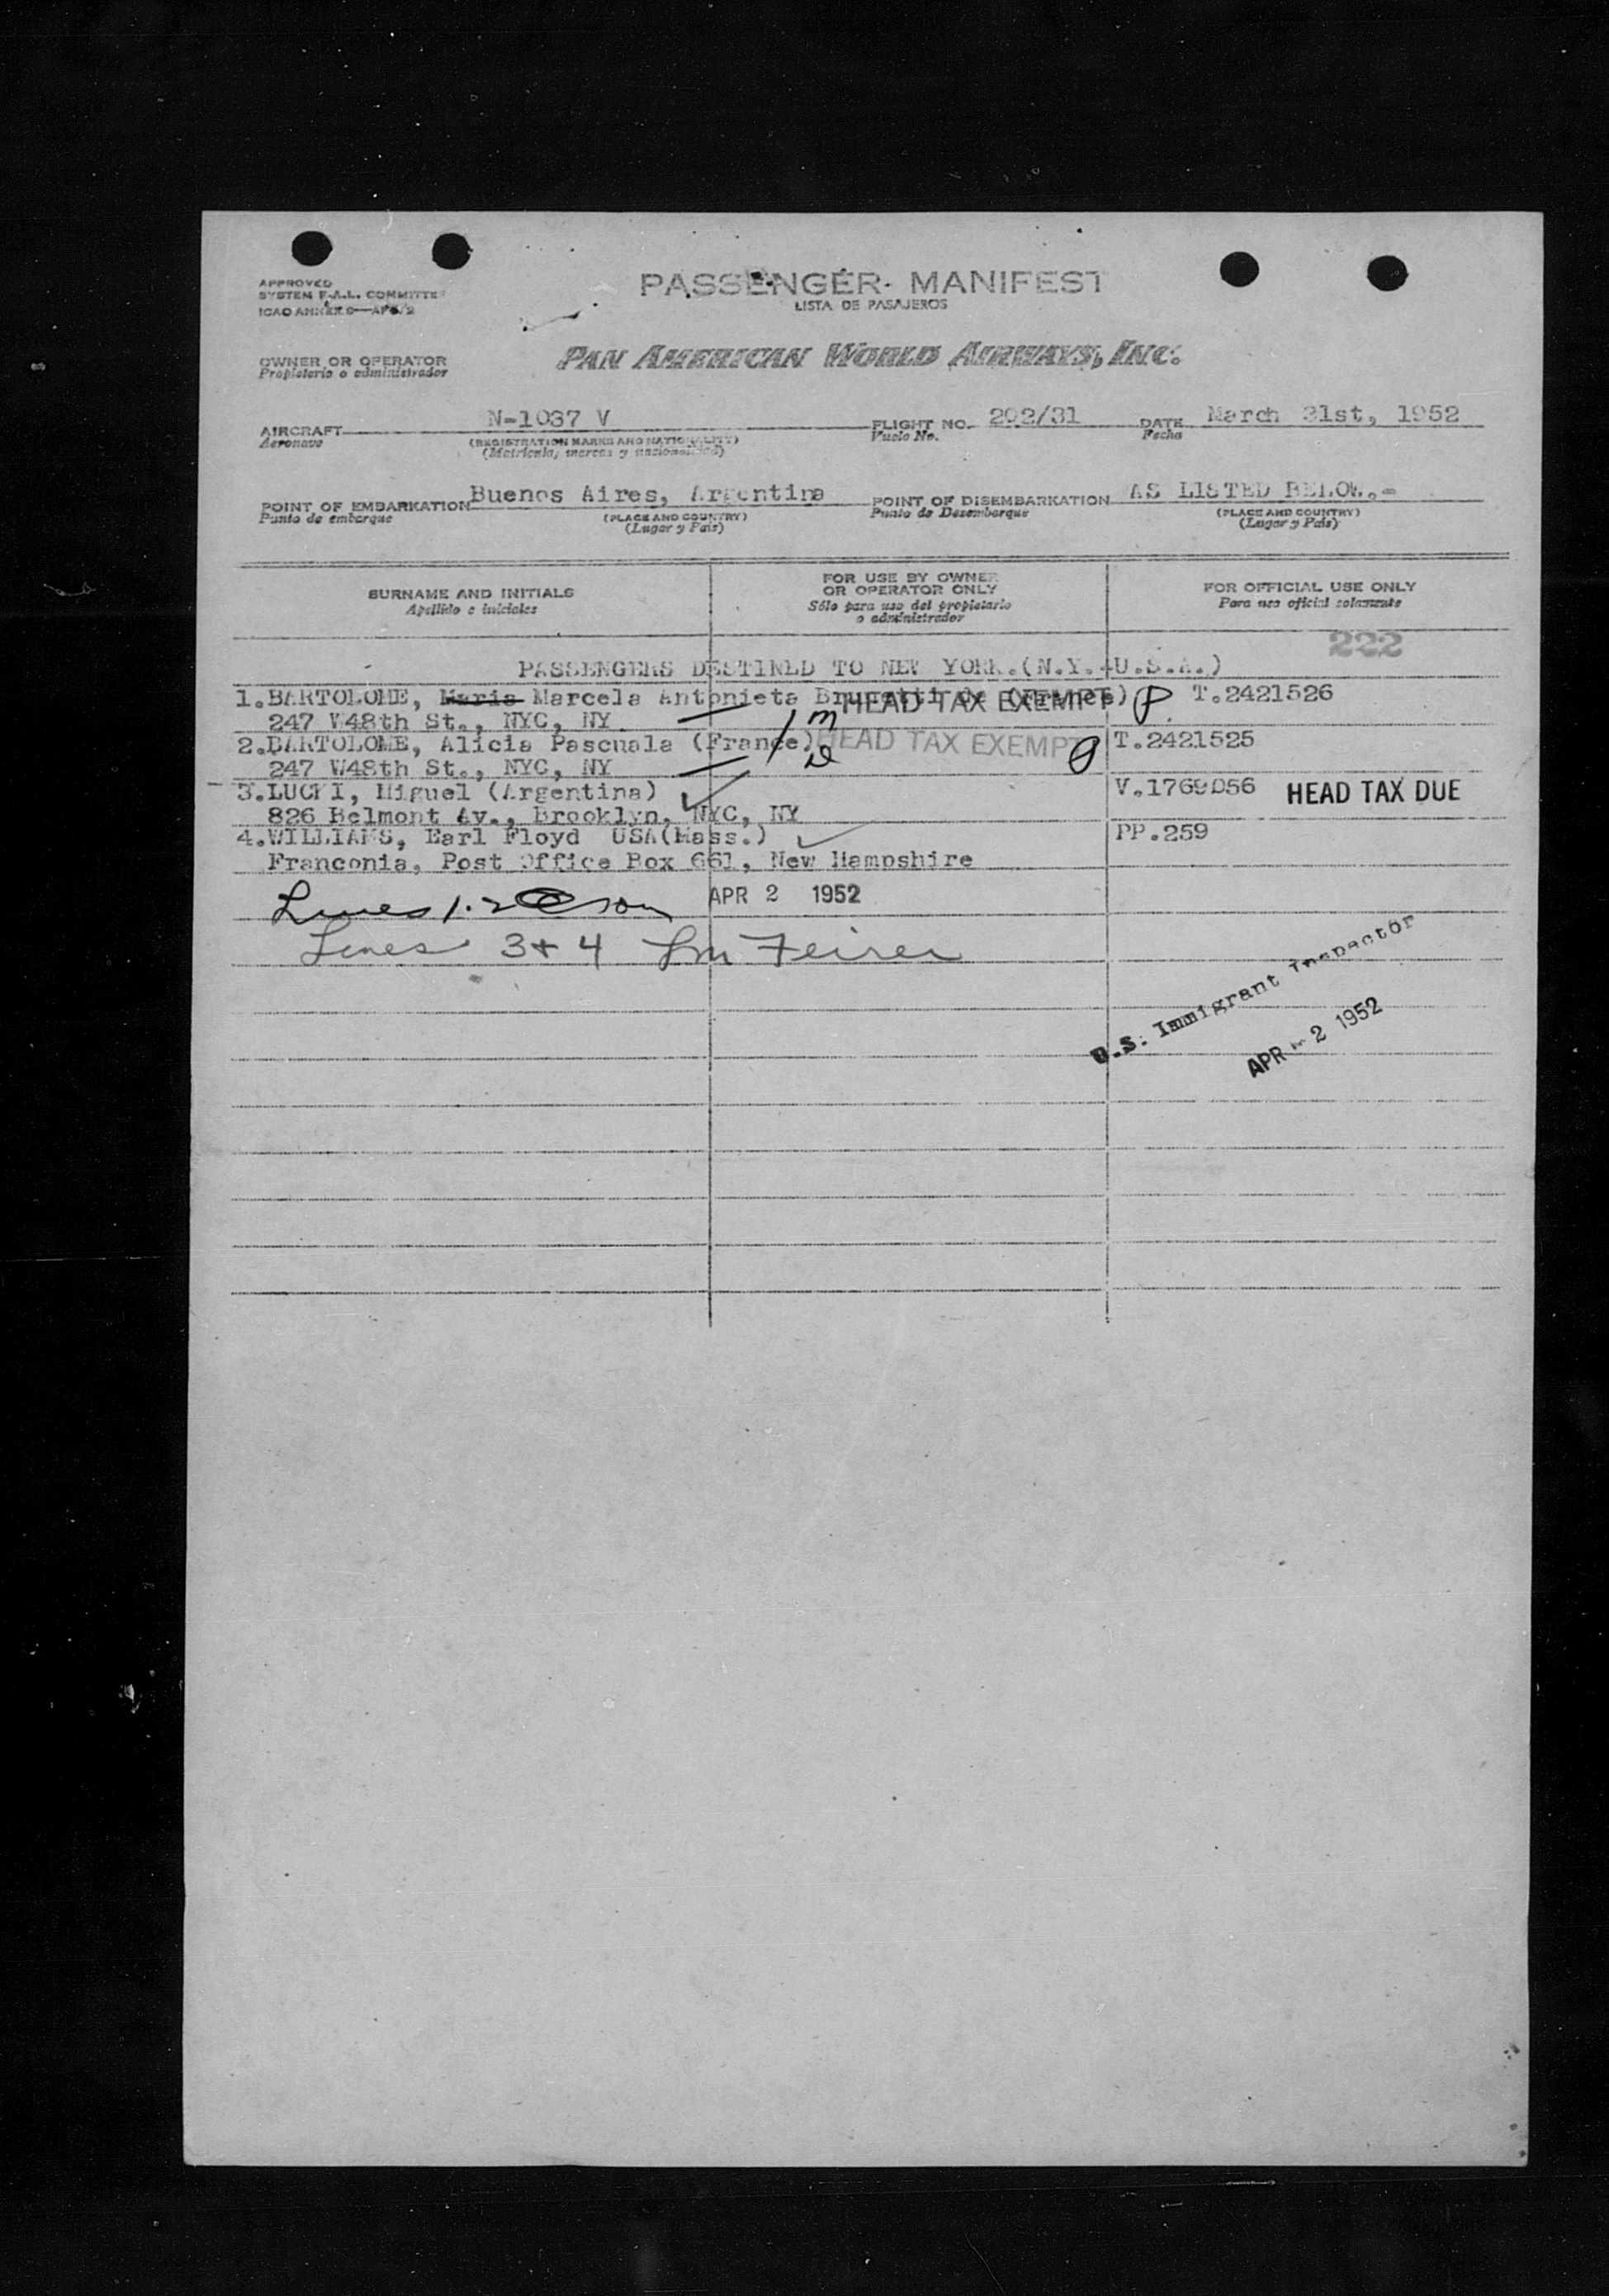 APPROVED
SYSTEM F.A.L. COMMITTEE
ICAO ANNEX 9
PASSENGER MANIFEST
LISTA DE PASAJEROS
OWNER OR OPERATOR
Propietario o administrador
PAN AMERICAN WORLD AIRWAYS, INC.
AIRCRAFT N-1037 V FLIGHT NO. 202/31 DATE March 31st, 1952
Aeronave (REGISTRATION MARKS AND NATIONALITY) Vuelo No. Fecha
(Matricula, marcas y nacionalidad)
POINT OF EMBARKATION Buenos Aires, Argentina POINT OF DISEMBARKATION AS LISTED BELOW.-
Punto de embarque (PLACE AND COUNTRY) Punto de Desembarque (PLACE AND COUNTRY)
(Lugar y País) (Lugar y País)
SURNAME AND INITIALS FOR USE BY OWNER OR OPERATOR ONLY FOR OFFICIAL USE ONLY
Apellido e iniciales Sólo para uso del propietario o administrador Para uso oficial solamente
222
PASSENGERS DESTINED TO NEW YORK.(N.Y. U.S.A.)
1.BARTOLOME, Maria Marcela Antonieta HEAD TAX EXEMPT T.2421526
247 W48th St., NYC, NY
2.BARTOLOME, Alicia Pascuala (France) HEAD TAX EXEMPT T.2421525
247 W48th St., NYC, NY
3. Miguel (Argentina) V.1769056 HEAD TAX DUE
826 Belmont Av., Brooklyn, NYC, NY
4.WILLIAMS, Earl Floyd USA(Mass.) PP.259
Franconia, Post Office Box 661, New Hampshire
Lines 1.2 APR 2 1952
Lines 3+4
U.S. Immigrant Inspector
APR - 2 1952